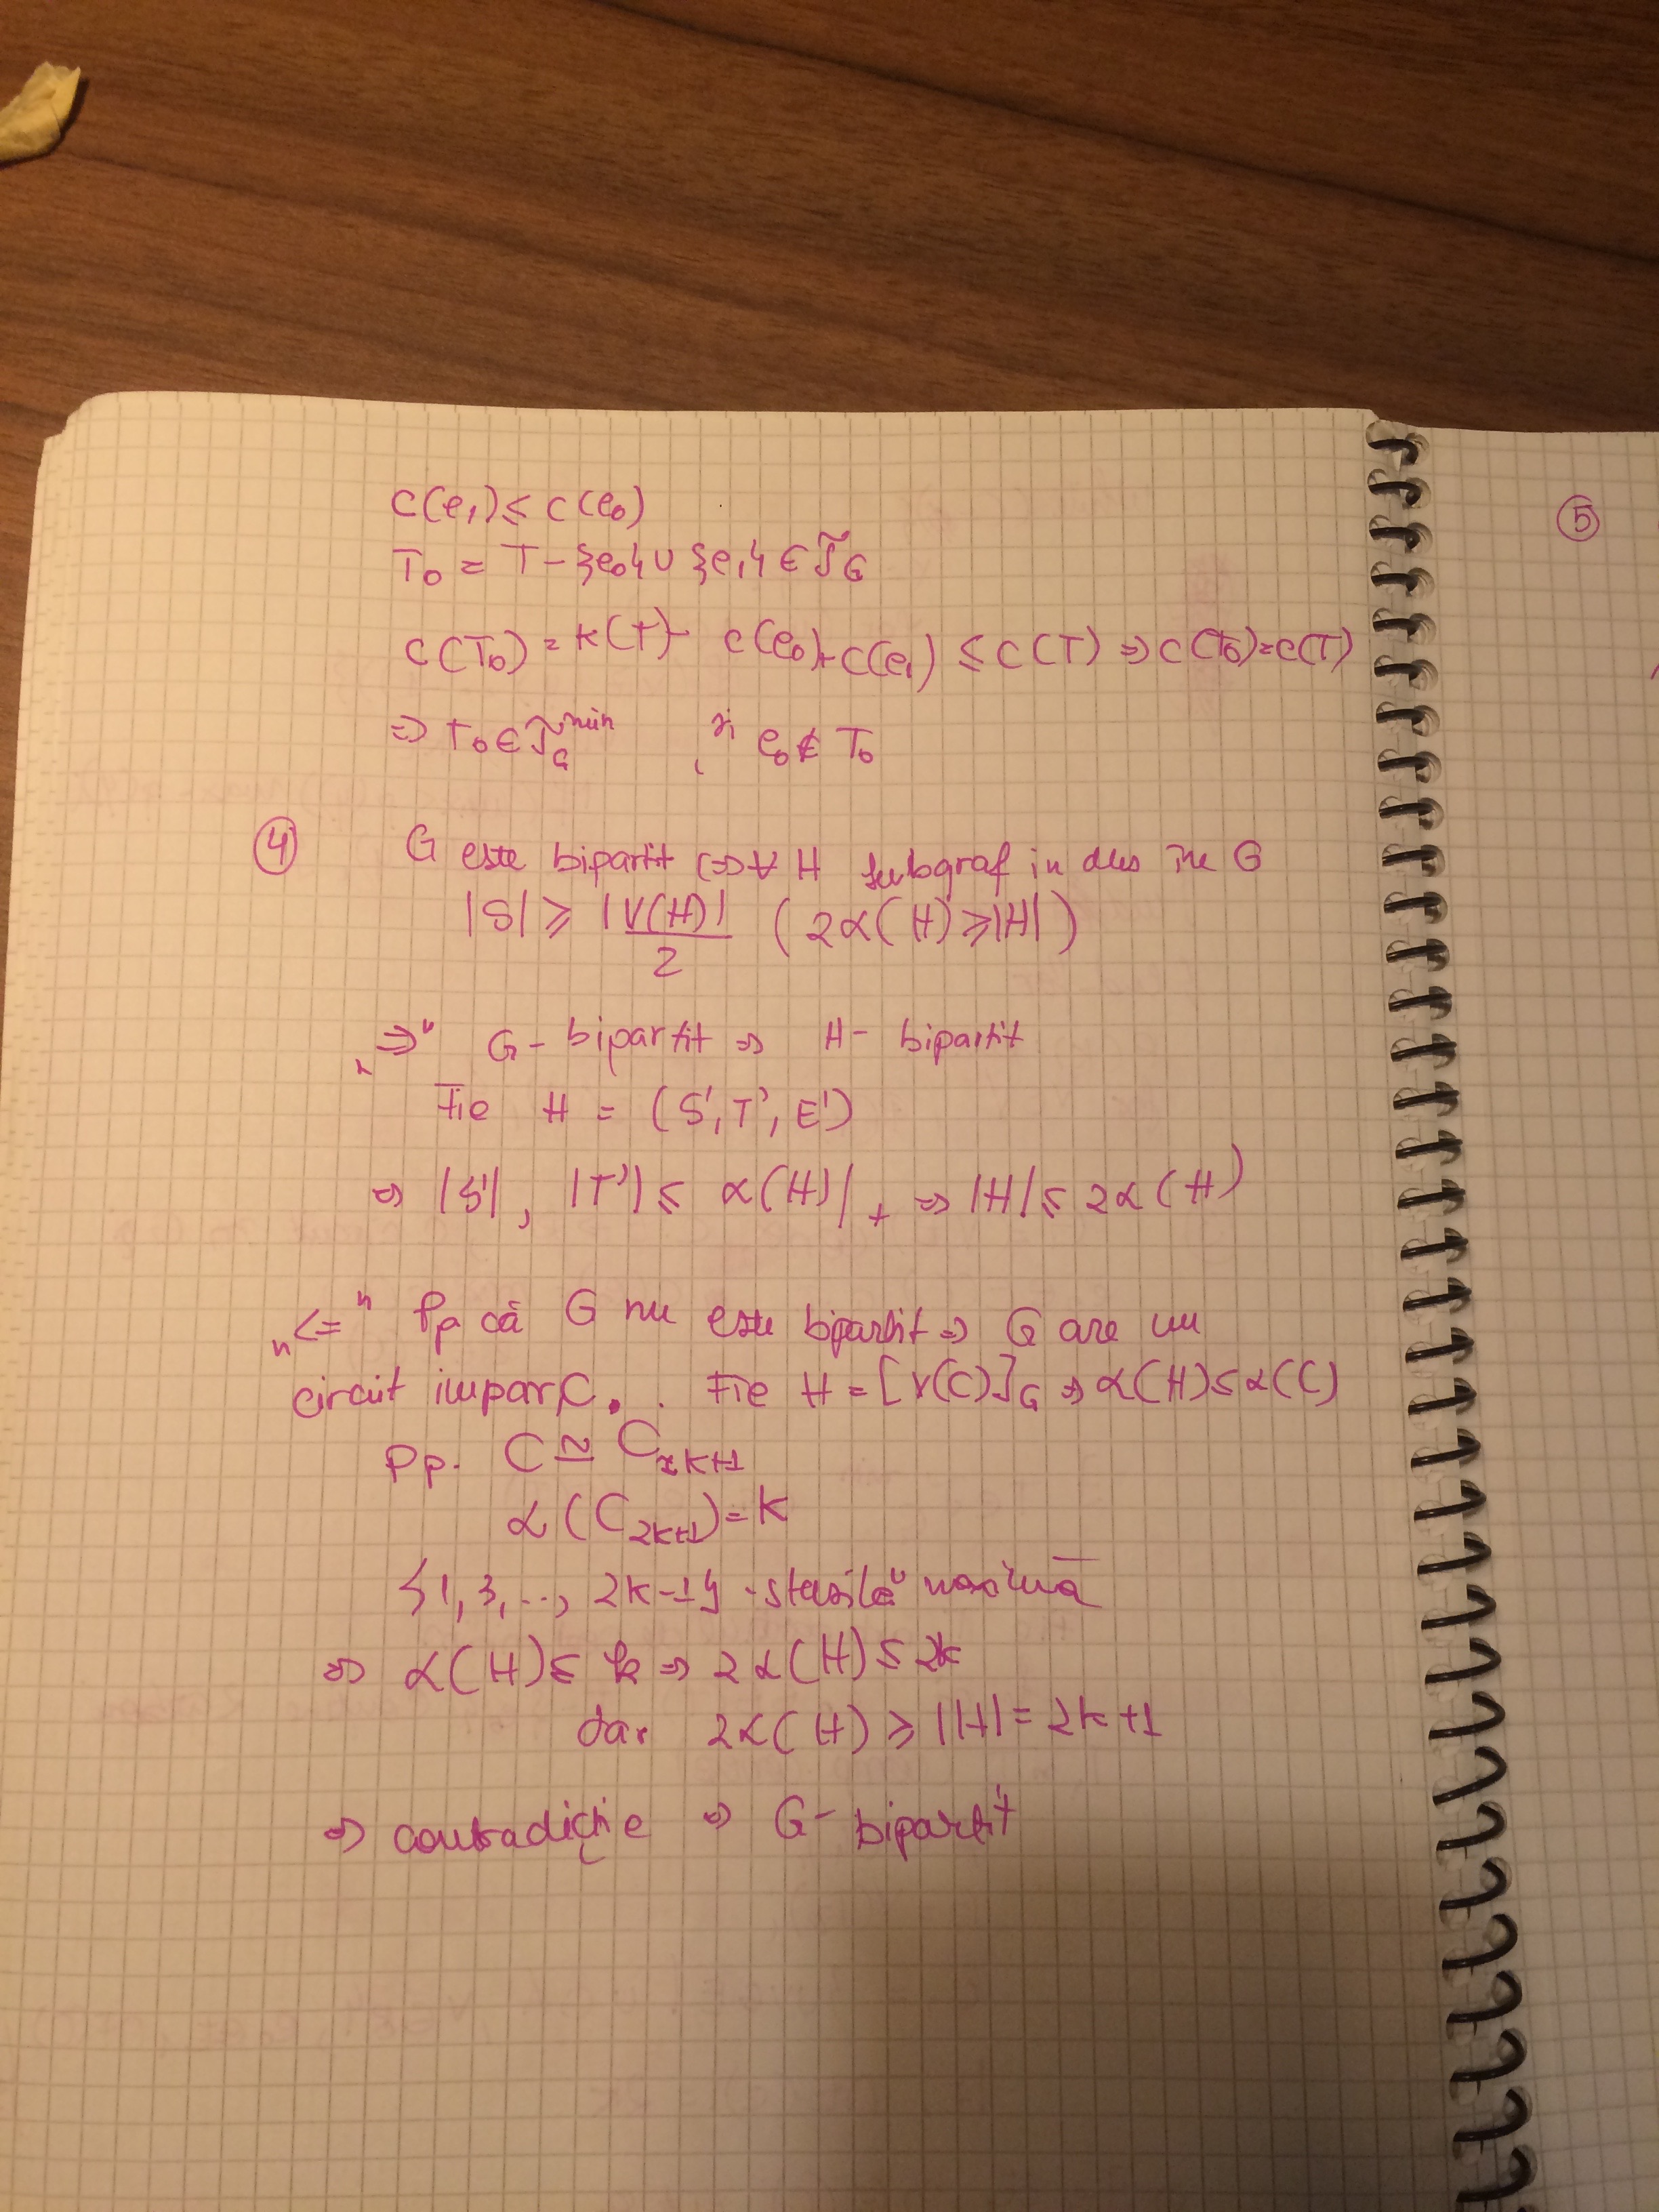 c(e₁) ≤ c(e₀)
T₀ = T - {e₀} ∪ {e₁} ∈ 𝒯_G
c(T₀) = k(T) - c(e₀) + c(e₁) ≤ c(T) ⇒ c(T₀) = c(T)
⇒ T₀ ∈ 𝒯_G^min , și e₀ ∉ T₀
⑤
④ G este bipartit (⇒ ∀ H subgraf in dus în G
|S| ≥ |V(H)|/2 (2α(H) ≥ |H|)
„⇒" G - bipartit ⇒ H - bipartit
Fie H = (S', T', E')
⇒ |S'|, |T'| ≤ α(H) | + ⇒ |H| ≤ 2α(H)
„<=" Pp că G nu este bipartit ⇒ G are un
circuit impar C. . Fie H = [V(C)]_G ⇒ α(H) ≤ α(C)
Pp. C ≅ C₂ₖ₊₁
α(C₂ₖ₊₁) = k
{1, 3, ..., 2k-1} - maximă
⇒ α(H) ≤ k ⇒ 2α(H) ≤ 2k
dar 2α(H) ≥ |H| = 2k+1
⇒ contradicție ⇒ G - bipartit